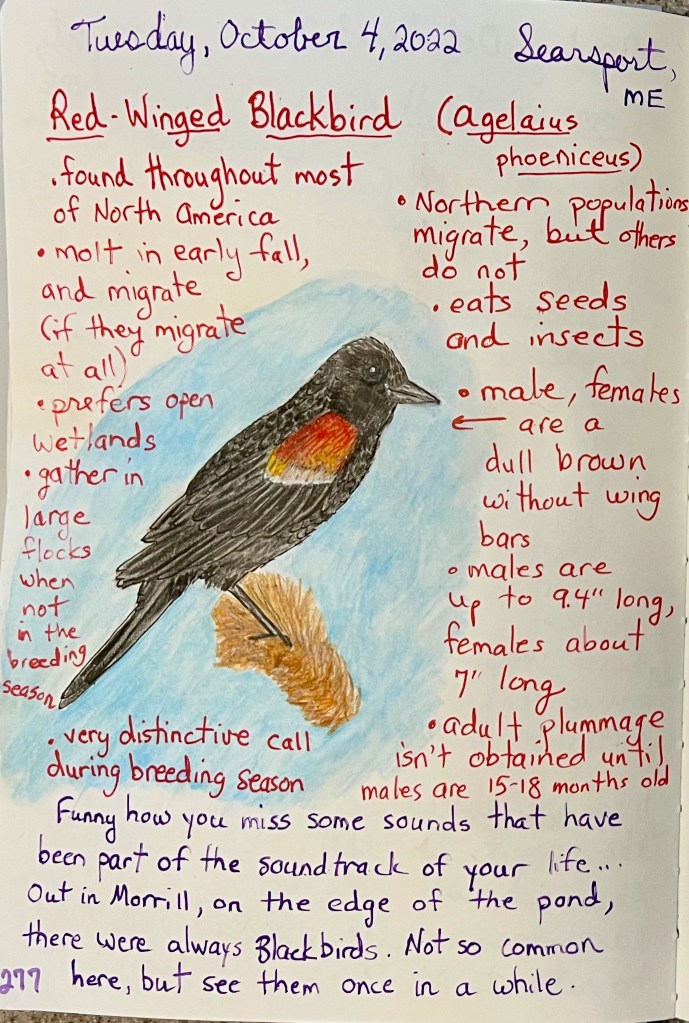 Tuesday, October 4, 2022 Searsport,
ME
Red-Winged Blackbird (Agelaius
phoeniceus)
. found throughout most
of North America
• molt in early fall,
and migrate
(if they migrate
at all)
• prefers open
wetlands
• gather in
large
flocks
when
not
in the
breeding
season
. very distinctive call
during breeding season
• Northern populations
migrate, but others
do not
. eats seeds
and insects
• male, females
← are a
dull brown
without wing
bars
• males are
up to 9.4" long,
females about
7" long
• adult plummage
isn't obtained until
males are 15-18 months old
Funny how you miss some sounds that have
been part of the soundtrack of your life...
Out in Morrill, on the edge of the pond,
there were always Blackbirds. Not so common
277 here, but see them once in a while.